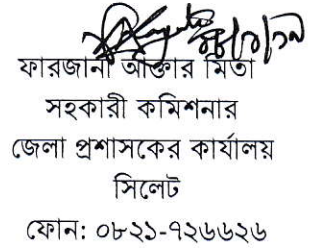 ফারজানা আক্তার মিতা
সহকারী কমিশনার
জেলা প্রশাসকের কার্যালয়
সিলেট
ফোন: ০৮২১-৭২৬৬২৬